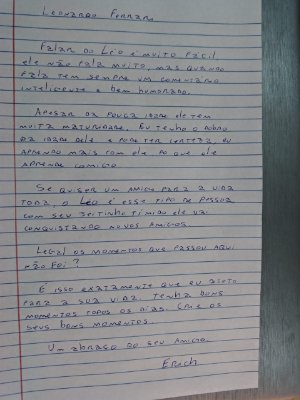 Leonardo Ferrari
Falar do Léo é muito fácil
ele não fala muito, mas quando
fala tem sempre um comentário
inteligente e bem humorado.
Apesar da pouca idade ele tem
muita maturidade. Eu tenho o dobro
da idade dele e pode ter certeza, eu
aprendo mais com ele do que ele
aprende comigo
Se quiser um amigo para a vida
toda, o Léo é esse tipo de pessoa
com seu jeitinho tímido ele vai
conquistando novos amigos.
Legal os momentos que passou aqui
não foi?
É isso exatamente que eu desejo
para a sua vida, tenha bons
momentos todos os dias. Crie os
seus bons momentos.
Um abraço do seu amigo